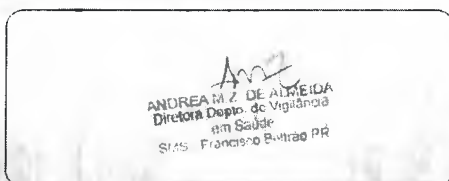 ANDREA M.Z. DE ALMEIDA
Diretora Depto. de Vigilância
em Saúde
SMS - Francisco Beltrão PR